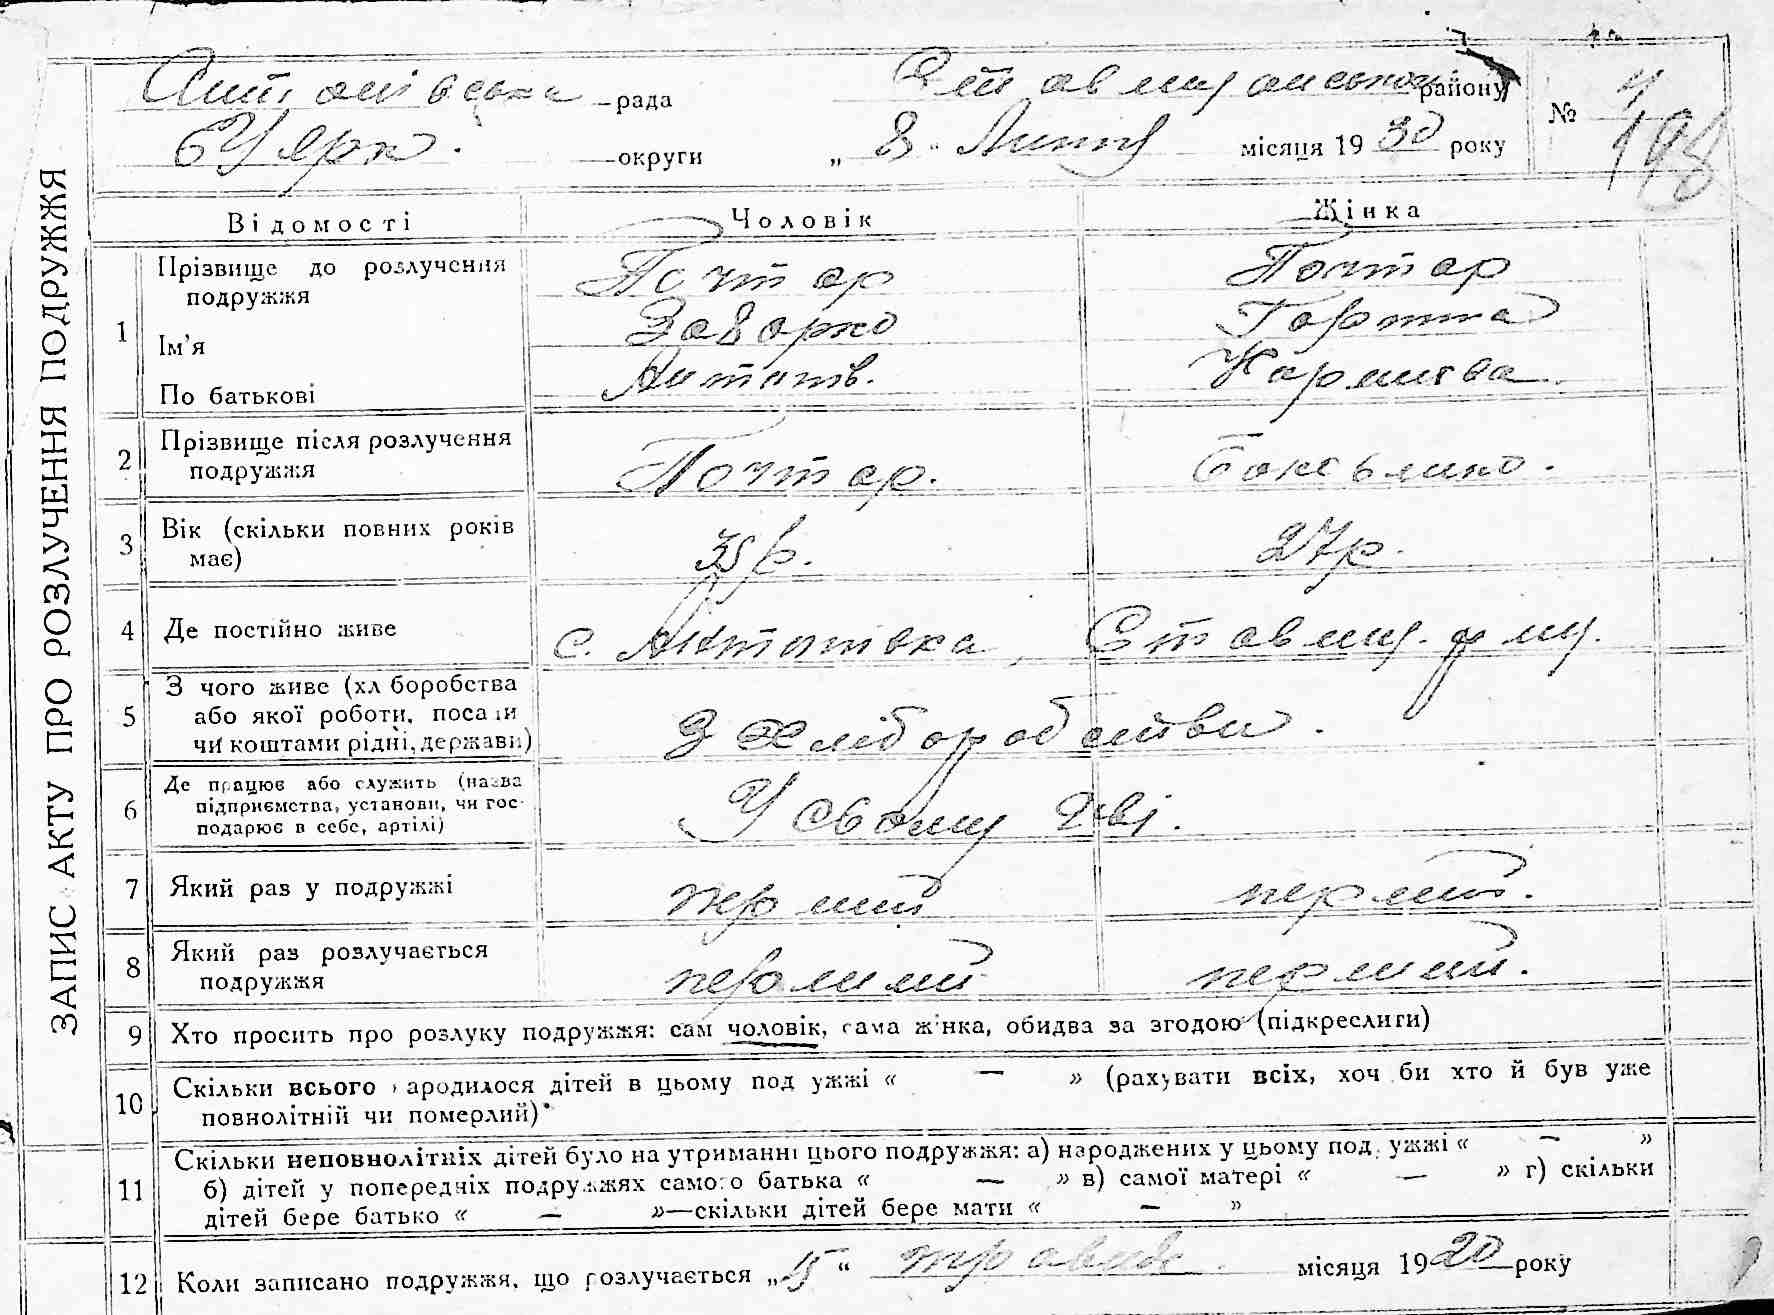 ЗАПИС АКТУ ПРО РОЗЛУЧЕННЯ ПОДРУЖЖЯ
Антонівська рада Ставищанського району
БЦ ярк. округи „ 8 " Лютня місяця 1930 року
№ 4
198
Відомості Чоловік Жінка
1 Прізвище до розлучення Почтар Почтар
подружжя
Ім'я Захарко
По батькові Антонів.
2 Прізвище після розлучення Почтар.
подружжя
3 Вік (скільки повних років 35 р. 27 р.
має)
4 Де постійно живе с. Антонівка, Ставищ. р
5 З чого живе (хліборобства
або якої роботи, посади З хліборобства.
чи коштами рідні, держави)
6 Де працює або служить (назва
підприємства, установи, чи гос- У свому г-ві.
подарює в себе, артілі)
7 Який раз у подружжі перший перший.
8 Який раз розлучається перший перший.
подружжя
9 Хто просить про розлуку подружжя: сам чоловік, сама жінка, обидва за згодою (підкреслити)
10 Скільки всього народилося дітей в цьому подружжі « — » (рахувати всіх, хоч би хто й був уже
повнолітній чи померлий)
11 Скільки неповнолітніх дітей було на утриманні цього подружжя: а) народжених у цьому подружжі « — »
б) дітей у попередніх подружжях самого батька « — » в) самої матері « — » г) скільки
дітей бере батько « — »—скільки дітей бере мати « — »
12 Коли записано подружжя, що розлучається „15" травня місяця 1920 року